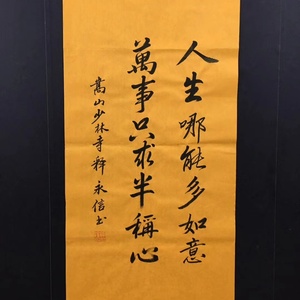 人生哪能多如意
萬事只求半稱心
嵩山少林寺釋永信书